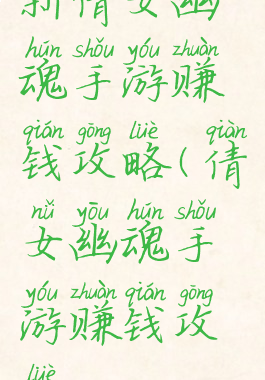 新倩女幽
hún shǒu yóu zhuàn
魂手游赚
qián gōng lüè qiàn
钱攻略(倩
nǚ yōu hún shǒu
女幽魂手
yóu zhuàn qián gōng
游赚钱攻
lüè